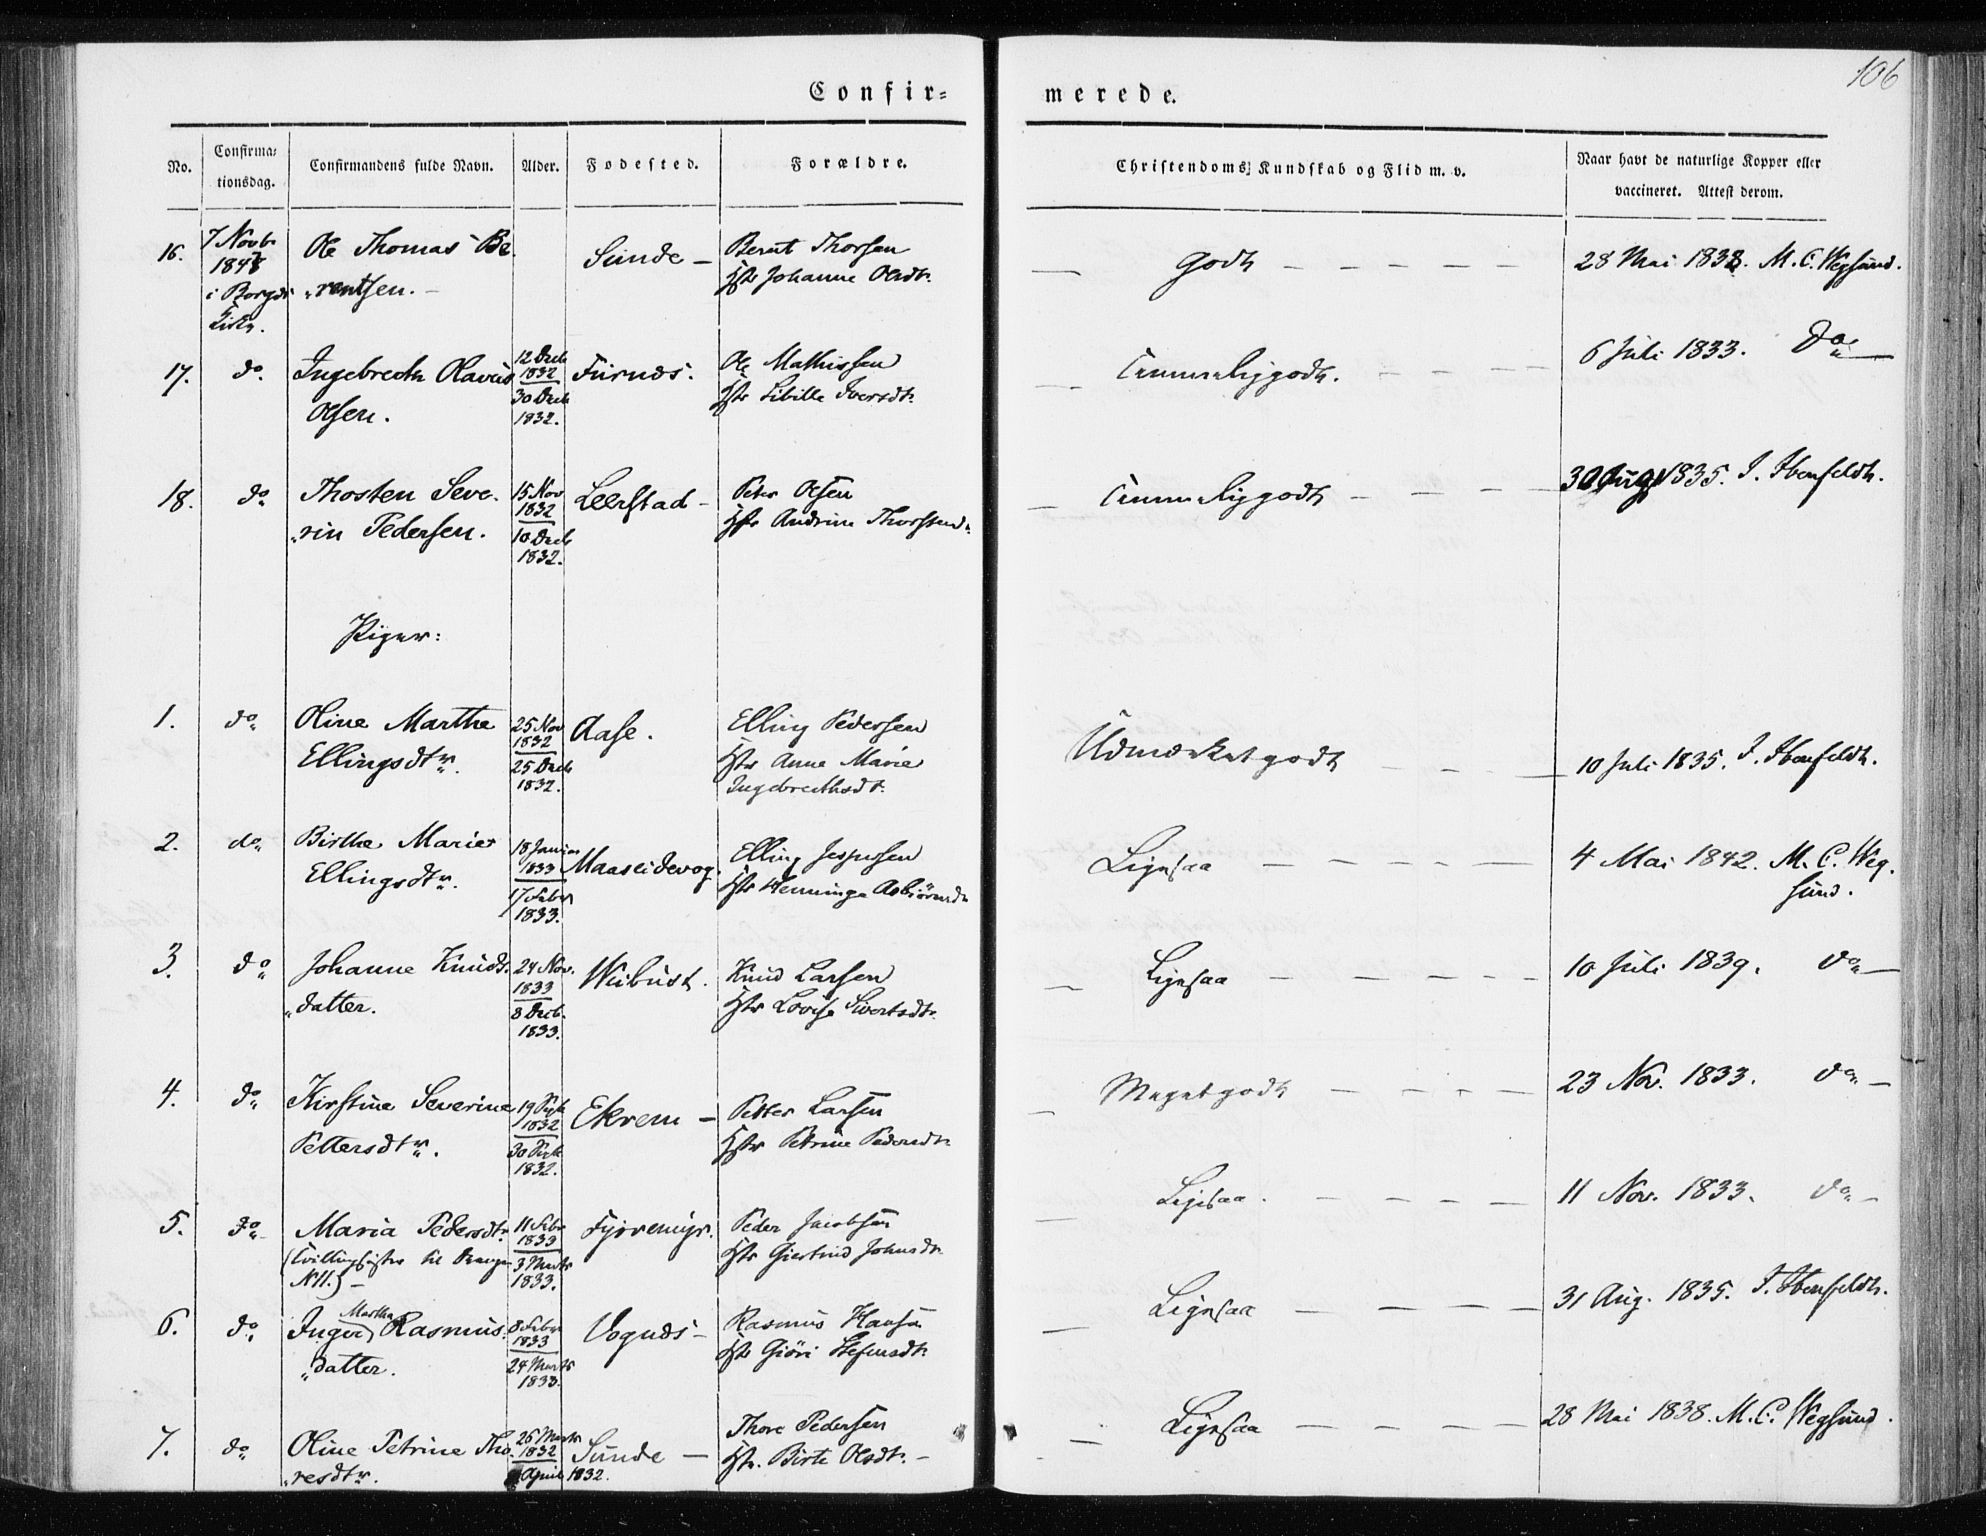 106
Confir= merede.
No. Confirma= tionsdag. Confirmandens fulde Navn. Alder. Fødested. Forældre. Christendoms Kundskab og Flid m. v. Naar havt de naturlige Kopper eller vaccineret. Attest derom.
16. 7 Novb. Ole Thomas Be Sunde — Bernt Thorsen — Godt — 28 Mai 1838. M. C. Wegsund.
1848 „rentsen. — Hstr Johanne Olsdtr.
i Borgds
Kirke.
17. do. Ingebrecht Olavus 12 Decb 1832 Furnæs. Ole Mathissen — Temmelig godt. — 6 Juli 1833. do —
Olsen. 30 Decb 1832. Hstr Sibille Iversdtr.
18. do Thosten Seve- 15 Nov 1832 Leerstad — Peter Olsen — Temmelig godt — 30 Aug 1835. I. Ibenfeldt.
„rin Pedersen. 10 Decb 1832. Hstr Andrine Thorstensd.
Piger:
1. do Oline Marthe 25 Nov 1832 Aase. Elling Pedersen Udmærket godt — 10 Juli 1835. I. Ibenfeldt.
Ellingsdtr. 25 Decb 1832. Hstr Anne Marie
Ingebrecthsdtr.
2. do Birthe Marie 18 Januar 1833 Maaseidevog. Elling Jespersen Ligesaa — 4 Mai 1842. M. C. Weg.
Ellingsdtr. 17 Febr 1833. Hstr Henninge Asbiörnsd. sund.
3. do Johanne Knuds. 24 Nov. 1833 Weibust. Knud Larsen — Ligesaa — 10 Juli 1839. do —
„datter. 8 Decb. 1833. Hstr Lovise Sivertsdtr.
4. do Kirstine Severine 19 Sept 1832 Ekrem — Petter Larsen — Meget godt — 23 Nov. 1833. do —
Pettersdtr. 30 Sept 1832. Hstr Petrine Pedersdtr.
5. do Maria Pedersdtr. 11 Febr 1833 Fyrremyr. Peder Jacobsen — Ligesaa. — 11 Nov. 1833. do —
(Tvillingsøster til Drengen 3 Marts 1833. Hstr Giertrud Johnsdtr
N 11.) —
6. do Inger Martha Rasmus. 8 Febr 1833 Vognæs — Rasmus Hansen — Ligesaa — 31 Aug. 1835. I. Ibenfeldt.
„datter. 24 Marts 1833. Hstr Giöri Stefensdtr.
7. do Oline Petrine Tho. 26 Marts 1832 Sunde — Thore Pedersen — Ligesaa — 28 Mai 1838. M. C. Wegsund.
„resdtr. April 1832. Hstr. Birte Olsdtr. —